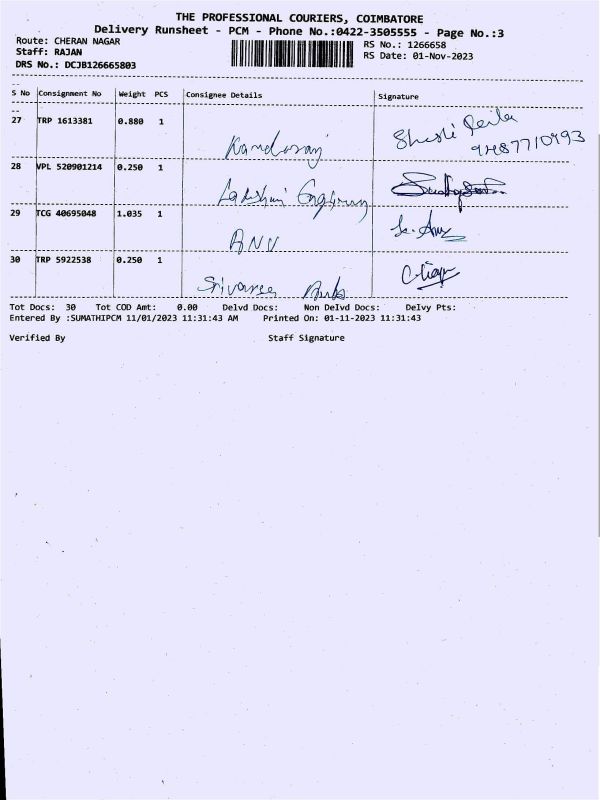 THE PROFESSIONAL COURIERS, COIMBATORE
Delivery Runsheet - PCM - Phone No.:0422-3505555 - Page No.:3
Route: CHERAN NAGAR
RS No.: 1266658
Staff: RAJAN
RS Date: 01-Nov-2023
DRS No.: DCJB126665803
S No Consignment No Weight PCS Consignee Details Signature
27 TRP 1613381 0.880 1
28 VPL 520901214 0.250 1
Lakshmi
29 TCG 40695048 1.035 1
ANV
30 TRP 5922538 0.250 1
Tot Docs: 30 Tot COD Amt: 0.00 Delvd Docs: Non Delvd Docs: Delvy Pts:
Entered By :SUMATHIPCM 11/01/2023 11:31:43 AM Printed On: 01-11-2023 11:31:43
Verified By Staff Signature